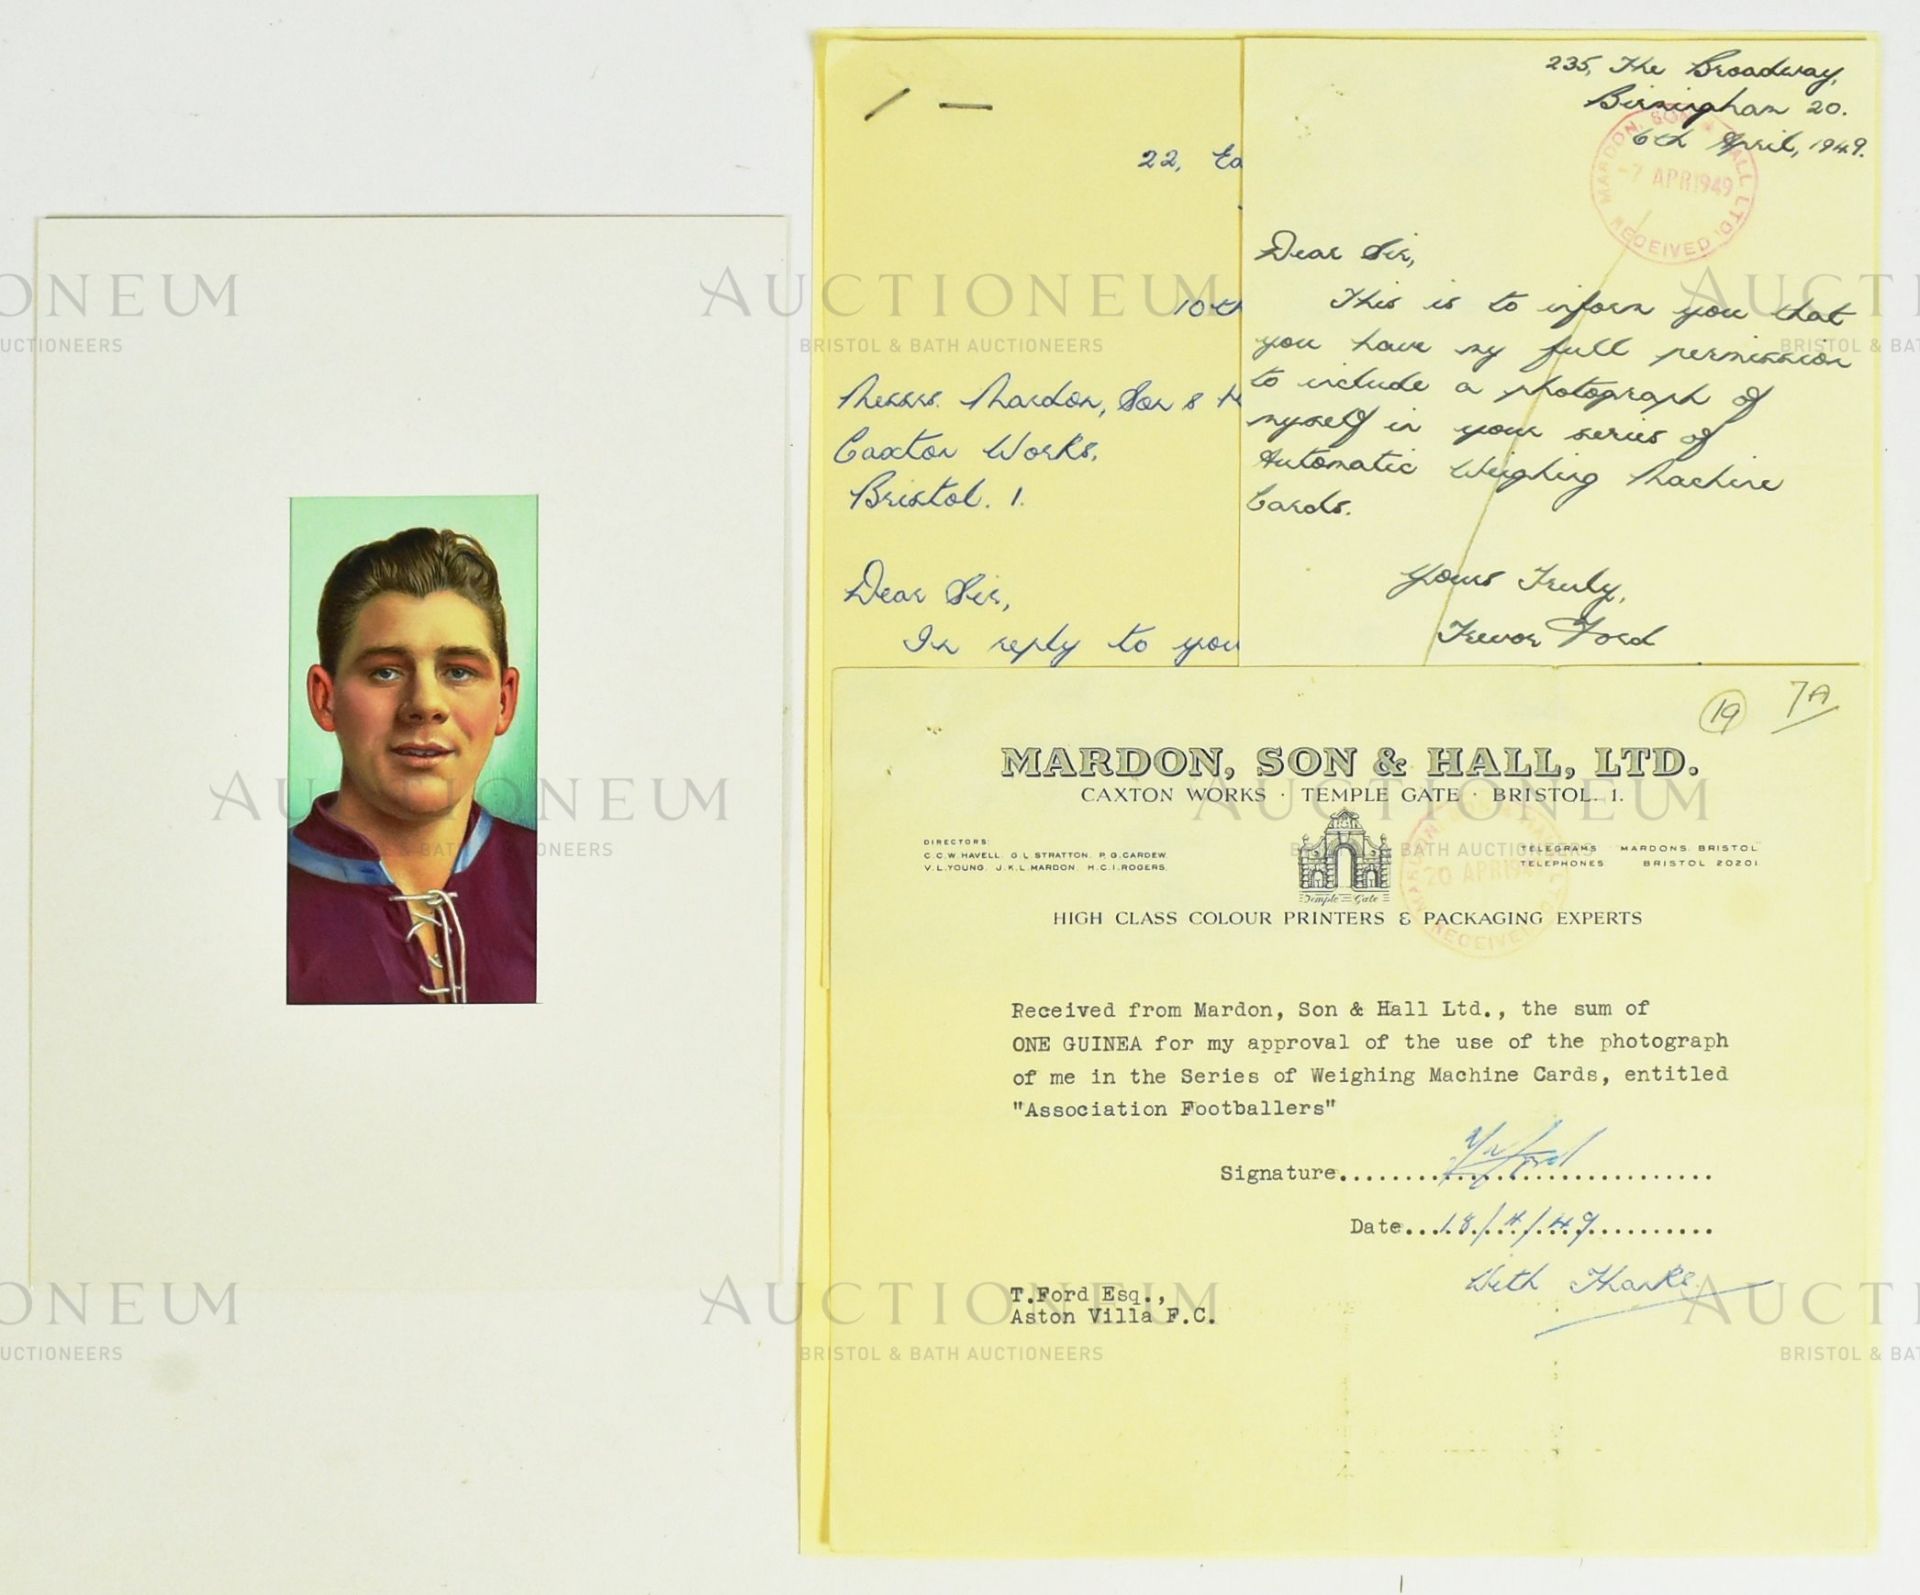 22, Ea
10th
Messrs. Mardon, Son & H
Caxton Works,
Bristol. 1.
Dear Sir,
In reply to you
235, The Broadway,
Birmingham 20.
6th April, 1949.
MARDON, SON & HALL LTD.
-7 APR 1949
RECEIVED
Dear Sir,
This is to inform you that
you have my full permission
to include a photograph of
myself in your series of
Automatic Weighing Machine
Cards.
Yours Truly,
Trevor Ford
19
7A
MARDON, SON & HALL, LTD.
CAXTON WORKS · TEMPLE GATE · BRISTOL. 1.
DIRECTORS
C.C.W. HAVELL. G.L. STRATTON. P.G. CARDEW
V.L. YOUNG. J.K.L. MARDON. H.C.I. ROGERS.
Temple Gate
TELEGRAMS MARDONS. BRISTOL
TELEPHONES BRISTOL 20201
20 APR 1949
RECEIVED
HIGH CLASS COLOUR PRINTERS & PACKAGING EXPERTS
Received from Mardon, Son & Hall Ltd., the sum of
ONE GUINEA for my approval of the use of the photograph
of me in the Series of Weighing Machine Cards, entitled
"Association Footballers"
Signature.... Ford
Date...18/4/49
With Thanks.
T.Ford Esq.,
Aston Villa F.C.
AUCTIONEUM
BRISTOL & BATH AUCTIONEERS